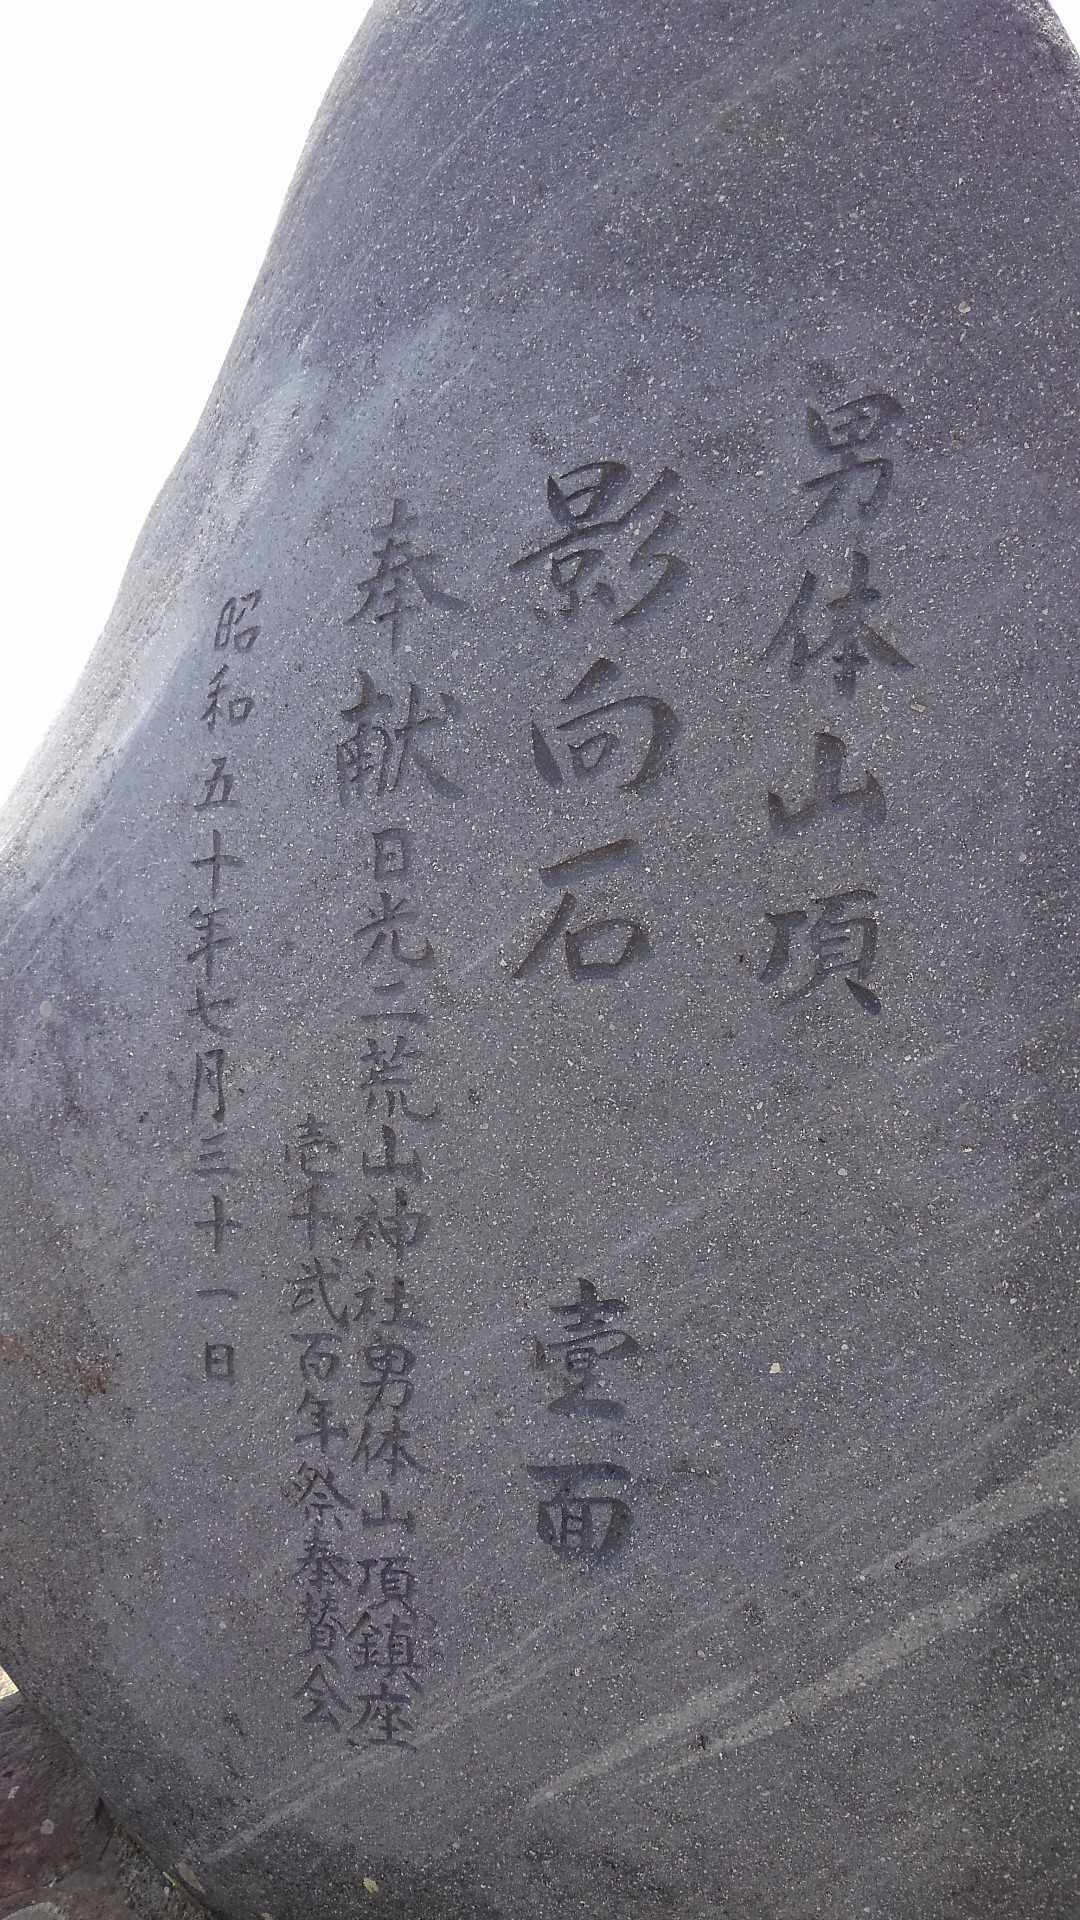 男体山頂
影向石 壹面
奉献日光二荒山神社男体山頂鎮座
壱千弐百年祭奉賛会
昭和五十年七月三十一日